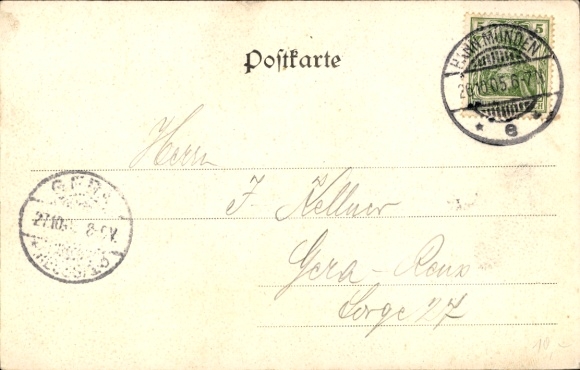 Postkarte
5 5
HANN. MÜNDEN
26.10.05.6-7N
* e *
Herrn
F. Kellner
Gera-Reuss
Sorge 27
GERA
27.10. 8-9V.
10,-